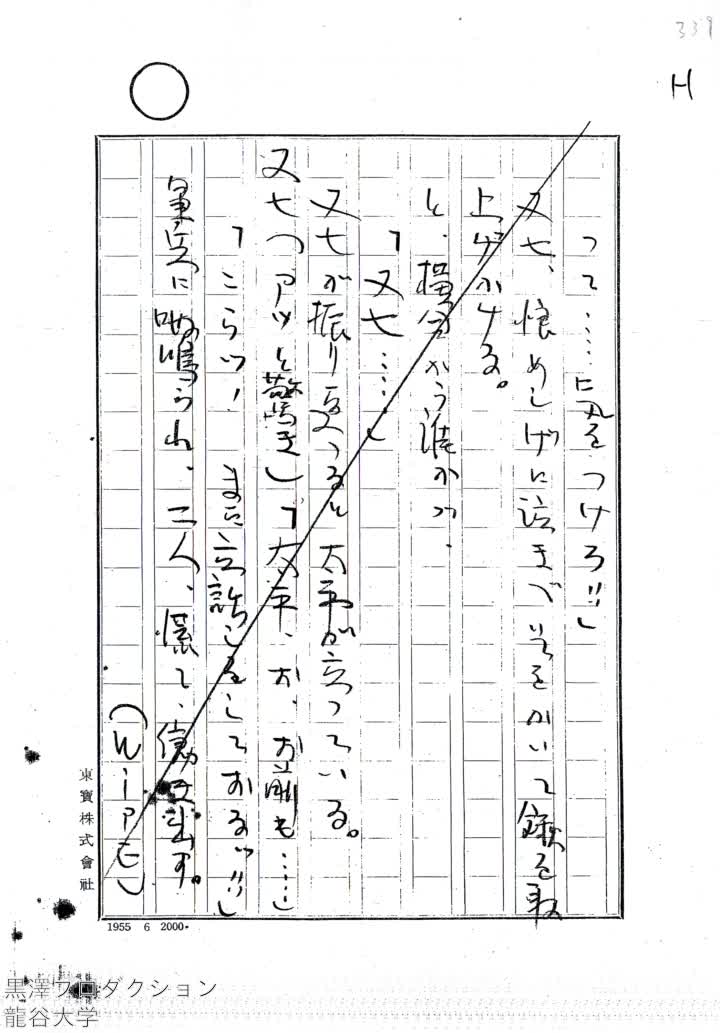 339
H
って……に気をつけろ!!」
又七、恨めしげに泣きべそをかいて鍬を取
上げかける。
と、横合から誰かゞ、
「又七……」
又七が振り返へると太平が立っている。
又七（アッと驚き）「太平、お、お前も……」
「こらッ！　まだ立話しをしておるッ!!」
軍兵に呶鳴られ、二人、慌てゝ働き出す。
（WIPE）
東寶株式會社
1955 6 2000・
黒澤プロダクション
龍谷大学